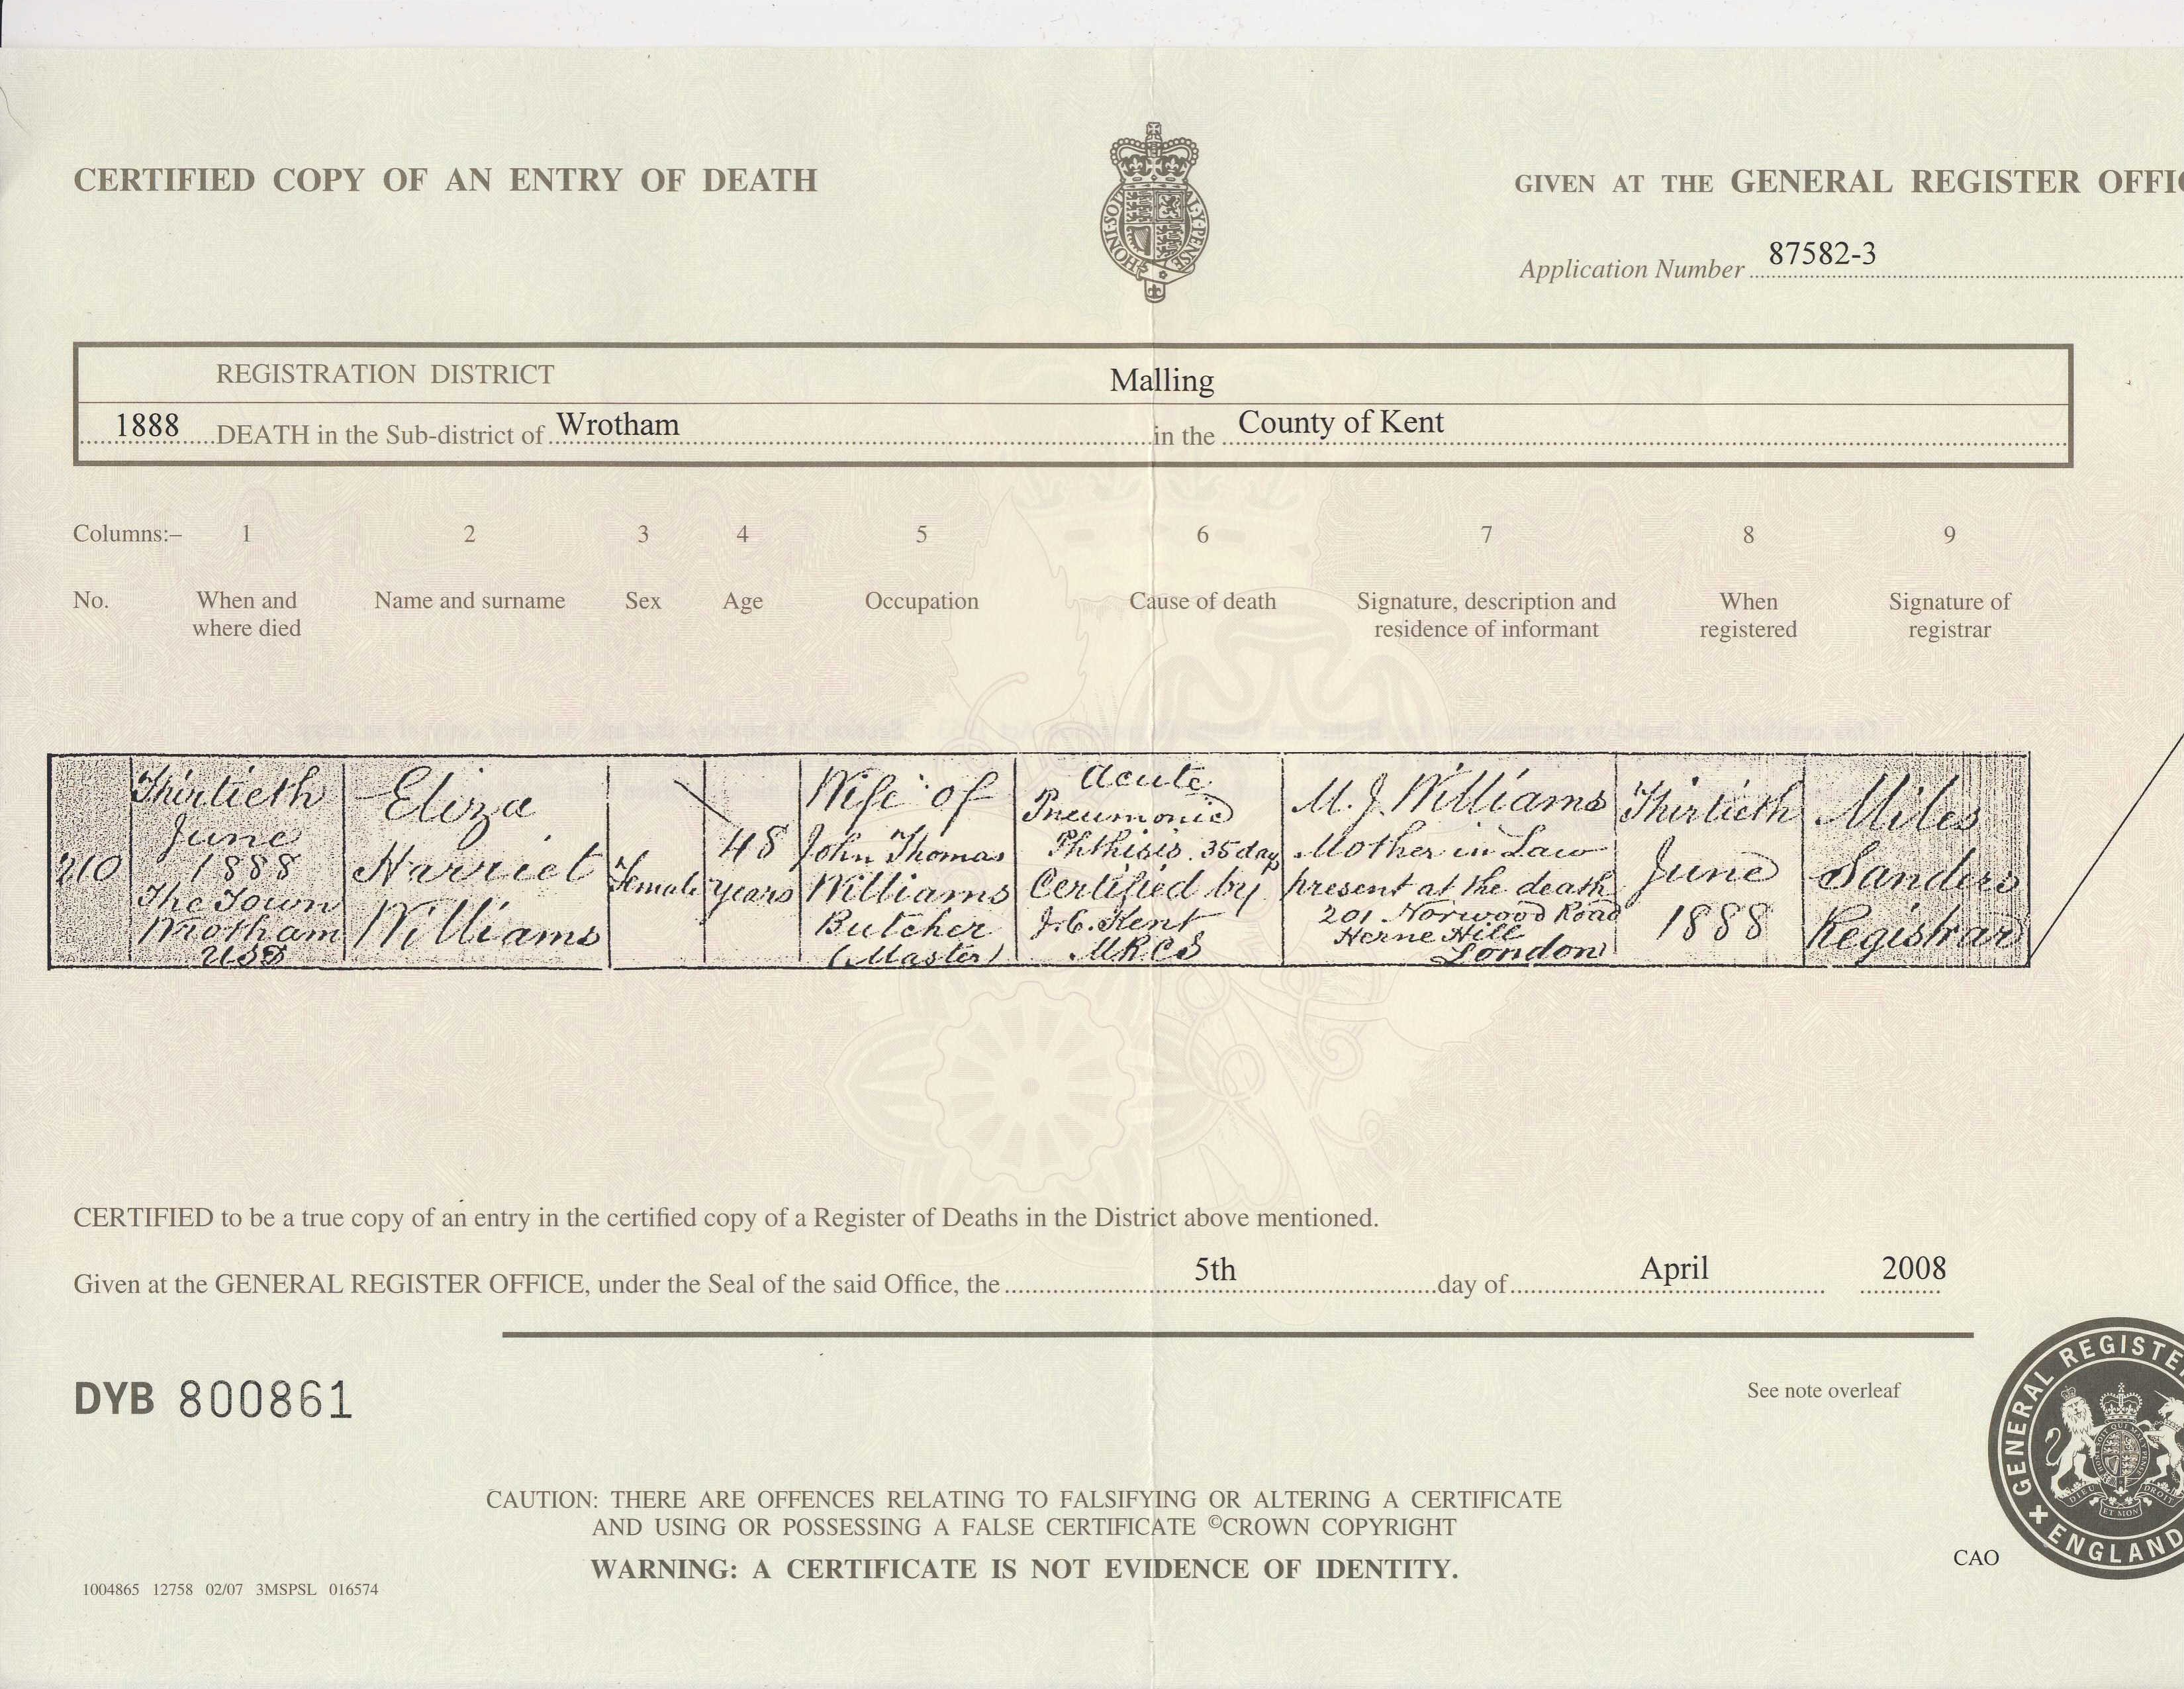 CERTIFIED COPY OF AN ENTRY OF DEATH
GIVEN AT THE GENERAL REGISTER OFFIC
HONI·SOI
AL·Y·PENSE
Application Number 87582-3
REGISTRATION DISTRICT Malling
1888 DEATH in the Sub-district of Wrotham in the County of Kent
Columns:– 1 2 3 4 5 6 7 8 9
No. When and where died Name and surname Sex Age Occupation Cause of death Signature, description and residence of informant When registered Signature of registrar
210
Thirtieth
June
1888
The Town
Wrotham
USD
Eliza
Harriet
Williams
Female
48
years
Wife of
John Thomas
Williams
Butcher
(Master)
Acute
Pneumonic
Phthisis. 35 days
Certified by
J. C. Kent
MRCS
M. J. Williams
Mother in Law
present at the death
201 Norwood Road
Herne Hill
London
Thirtieth
June
1888
Miles
Sanders
Registrar
CERTIFIED to be a true copy of an entry in the certified copy of a Register of Deaths in the District above mentioned.
Given at the GENERAL REGISTER OFFICE, under the Seal of the said Office, the 5th day of April 2008
DYB 800861
See note overleaf
GENERAL REGISTE
ENGLAND
DIEU ET MON DROIT
CAUTION: THERE ARE OFFENCES RELATING TO FALSIFYING OR ALTERING A CERTIFICATE
AND USING OR POSSESSING A FALSE CERTIFICATE ©CROWN COPYRIGHT
WARNING: A CERTIFICATE IS NOT EVIDENCE OF IDENTITY.
CAO
1004865 12758 02/07 3MSPSL 016574